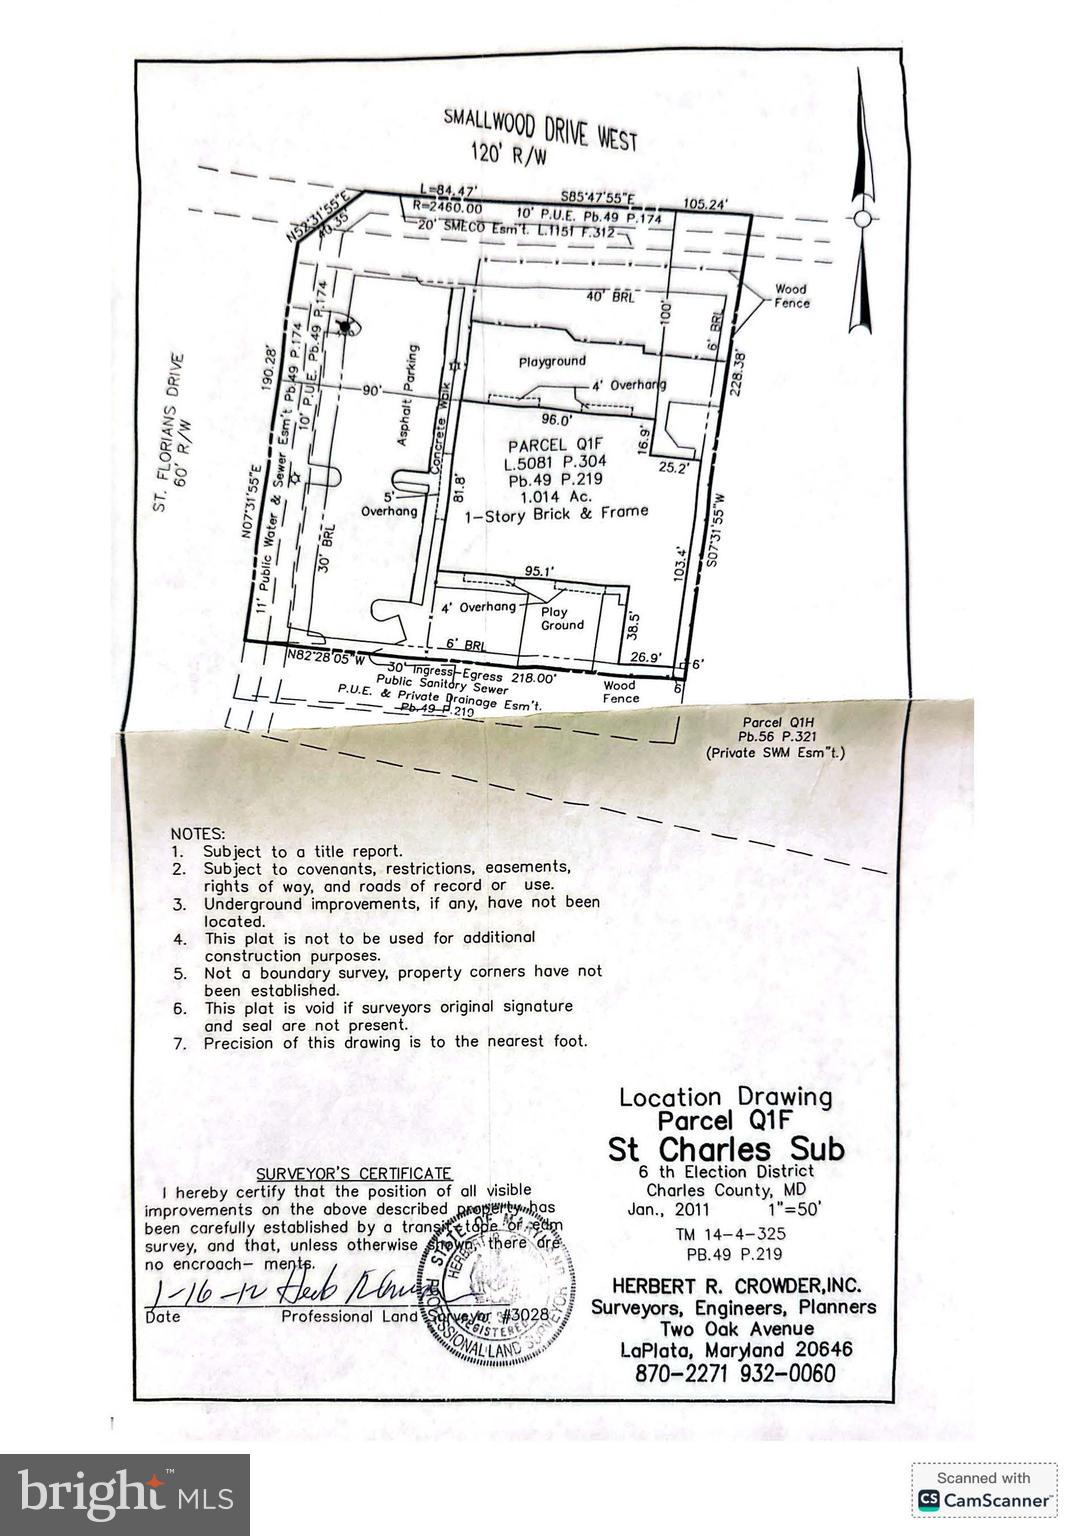 SMALLWOOD DRIVE WEST
120' R/W
L=84.47'
R=2460.00
S85°47'55"E
105.24'
10' P.U.E. Pb.49 P.174
20' SMECO Esm't. L.1151 F.312
N52°31'55"E
40.35'
Wood
Fence
40' BRL
100'
6' BRL
228.38'
190.28'
11' Public Water & Sewer Esm't Pb.49 P.174
10' P.U.E. Pb.49 P.174
ST. FLORIANS DRIVE
60' R/W
90'
Asphalt Parking
Concrete Walk
Playground
4' Overhang
96.0'
16.9'
25.2'
PARCEL Q1F
L.5081 P.304
Pb.49 P.219
1.014 Ac.
1-Story Brick & Frame
5'
Overhang
81.8'
N07°31'55"E
S07°31'55"W
30' BRL
103.4'
95.1'
4' Overhang
Play
Ground
38.5'
6' BRL
26.9'
6'
6'
N82°28'05"W
30' Ingress-Egress 218.00'
Public Sanitary Sewer
P.U.E. & Private Drainage Esm't.
Pb.49 P.219
Wood
Fence
Parcel Q1H
Pb.56 P.321
(Private SWM Esm"t.)
NOTES:
1. Subject to a title report.
2. Subject to covenants, restrictions, easements,
rights of way, and roads of record or use.
3. Underground improvements, if any, have not been
located.
4. This plat is not to be used for additional
construction purposes.
5. Not a boundary survey, property corners have not
been established.
6. This plat is void if surveyors original signature
and seal are not present.
7. Precision of this drawing is to the nearest foot.
SURVEYOR'S CERTIFICATE
I hereby certify that the position of all visible
improvements on the above described property has
been carefully established by a transit-tape or edm
survey, and that, unless otherwise shown, there are
no encroach- ments.
1-16-12
Date Professional Land Surveyor #3028
STATE OF MARYLAND
HERBERT R.
REGISTERED
PROFESSIONAL LAND SURVEYOR
Location Drawing
Parcel Q1F
St Charles Sub
6 th Election District
Charles County, MD
Jan., 2011 1"=50'
TM 14-4-325
PB.49 P.219
HERBERT R. CROWDER,INC.
Surveyors, Engineers, Planners
Two Oak Avenue
LaPlata, Maryland 20646
870-2271 932-0060
bright™ MLS
Scanned with
CS CamScanner™